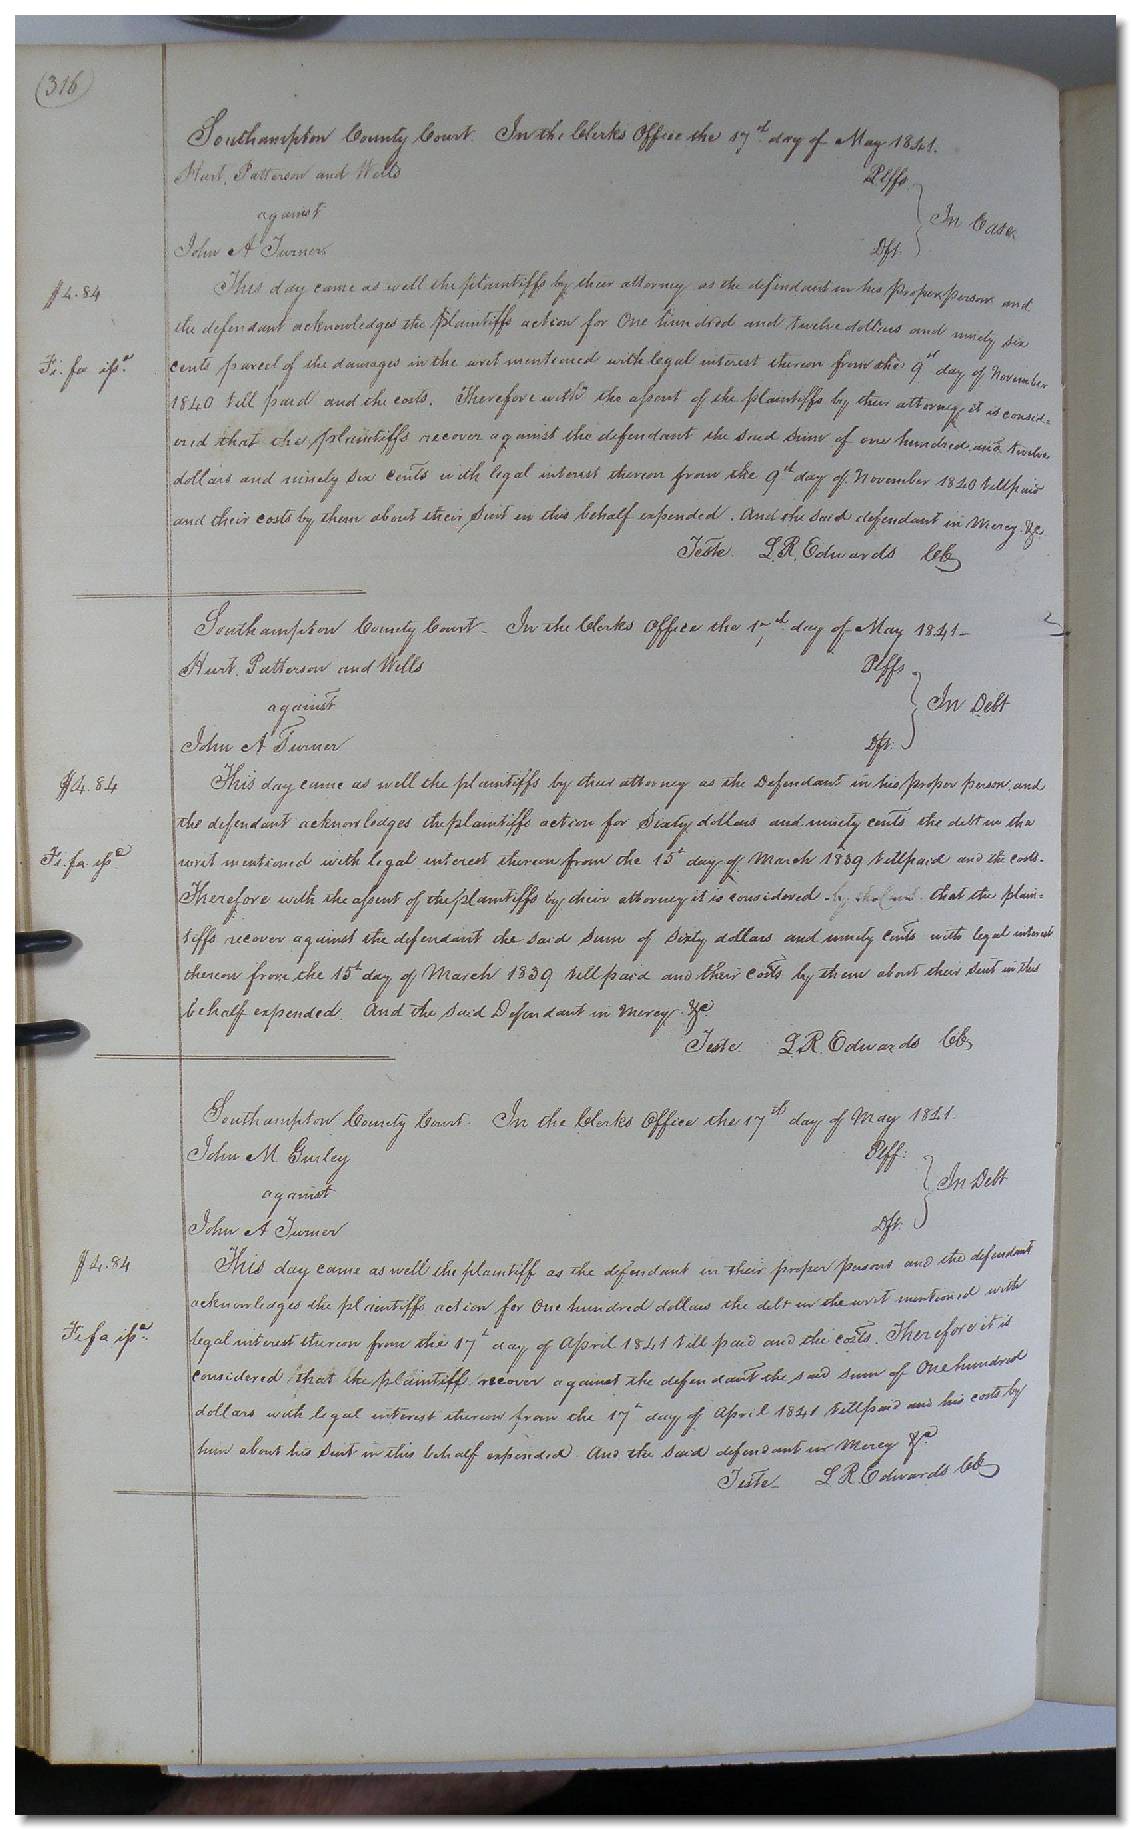 (316)
Southampton County Court. In the Clerks Office the 17th day of May 1841.
Hurt, Patterson and Wells Plffs
against In Case.
John A Turner. Dft.
$4.84
This day came as well the plaintiffs by their attorney as the defendant in his proper person and
the defendant acknowledges the plaintiffs action for One hundred and twelve dollars and ninety six
Fi. fa issd.
cents parcel of the damages in the writ mentioned with legal interest thereon from the 9th day of November
1840 till paid and the costs. Therefore with the assent of the plaintiffs by their attorney it is consid=
ered that the plaintiffs recover against the defendant the said sum of one hundred and twelve
dollars and ninety six cents with legal interest thereon from the 9th day of November 1840 till paid
and their costs by them about their suit in this behalf expended. And the said defendant in Mercy &c.
Teste L. R. Edwards CC
Southampton County Court - In the Clerks Office the 17th day of May 1841 -
Hurt, Patterson and Wells Plffs
against In Debt
John A Turner Dft.
$4.84
This day came as well the plaintiffs by their attorney as the Defendant in his proper person, and
the defendant acknowledges the plaintiffs action for Sixty dollars and ninety cents the debt in the
Fi. fa issd
writ mentioned with legal interest thereon from the 15t day of March 1839 till paid and the costs.
Therefore with the assent of the plaintiffs by their attorney it is considered that the plain=
tiffs recover against the defendant the said sum of Sixty dollars and ninety cents with legal interest
thereon from the 15t day of March 1839 till paid and their costs by them about their suit in this
behalf expended. And the said Defendant in Mercy &c
Teste L. R. Edwards CC
Southampton County Court. In the Clerks Office the 17th day of May 1841.
John M Gurley Plff.
against In Debt
John A Turner Dft.
$4.84
This day came as well the plaintiff as the defendant in their proper persons and the defendant
acknowledges the plaintiffs action for One hundred dollars the debt in the writ mentioned with
Fi fa issd.
legal interest thereon from the 17t day of April 1841 till paid and the costs. Therefore it is
considered that the plaintiff recover against the defendant the said sum of One hundred
dollars with legal interest thereon from the 17t day of April 1841 till paid and his costs by
him about his suit in this behalf expended. And the said defendant in Mercy &c
Teste L R Edwards CC